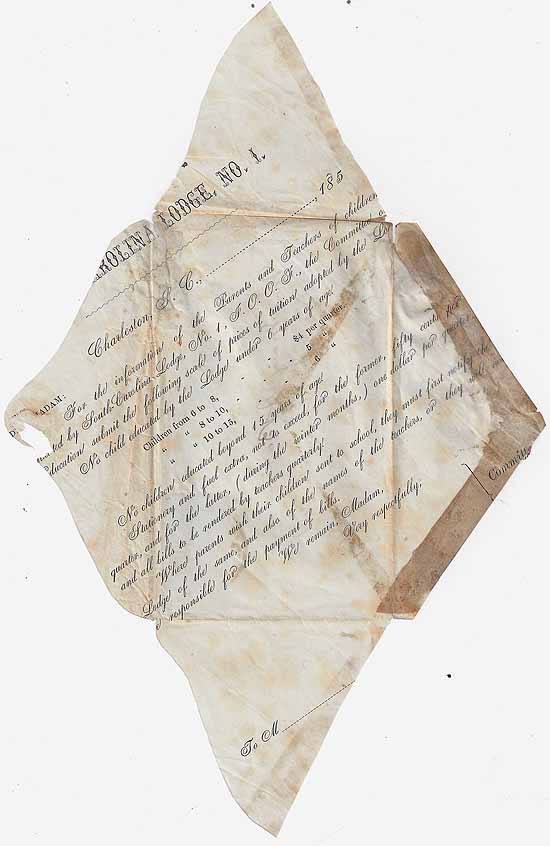 AROLINA LODGE, NO. 1,
Charleston, S. C., 185
ADAM:
For the information of the Parents and Teachers of children
ted by South-Carolina Lodge, No. 1, I. O. O. F., the Committee o
ducation, submit the following scale of prices of tuition adopted by the Lo
No child educated by the Lodge under 6 years of age
Children from 6 to 8, - - - $4 per quarter.
" " 8 to 10, - - - 5 "
" " 10 to 15, - - - 6 "
No children educated beyond 15 years of age
Stationery and fuel extra, not to exceed, for the former, fifty cents per
quarter, and for the latter, (during the winter months,) one dollar per quarter
and all bills to be rendered by teachers quarterly.
Where parents wish their children sent to school, they must first notify the
Lodge of the same, and also of the names of the teachers, or they will
responsible for the payment of bills.
We remain, Madam,
Very respectfully,
Committ
To M